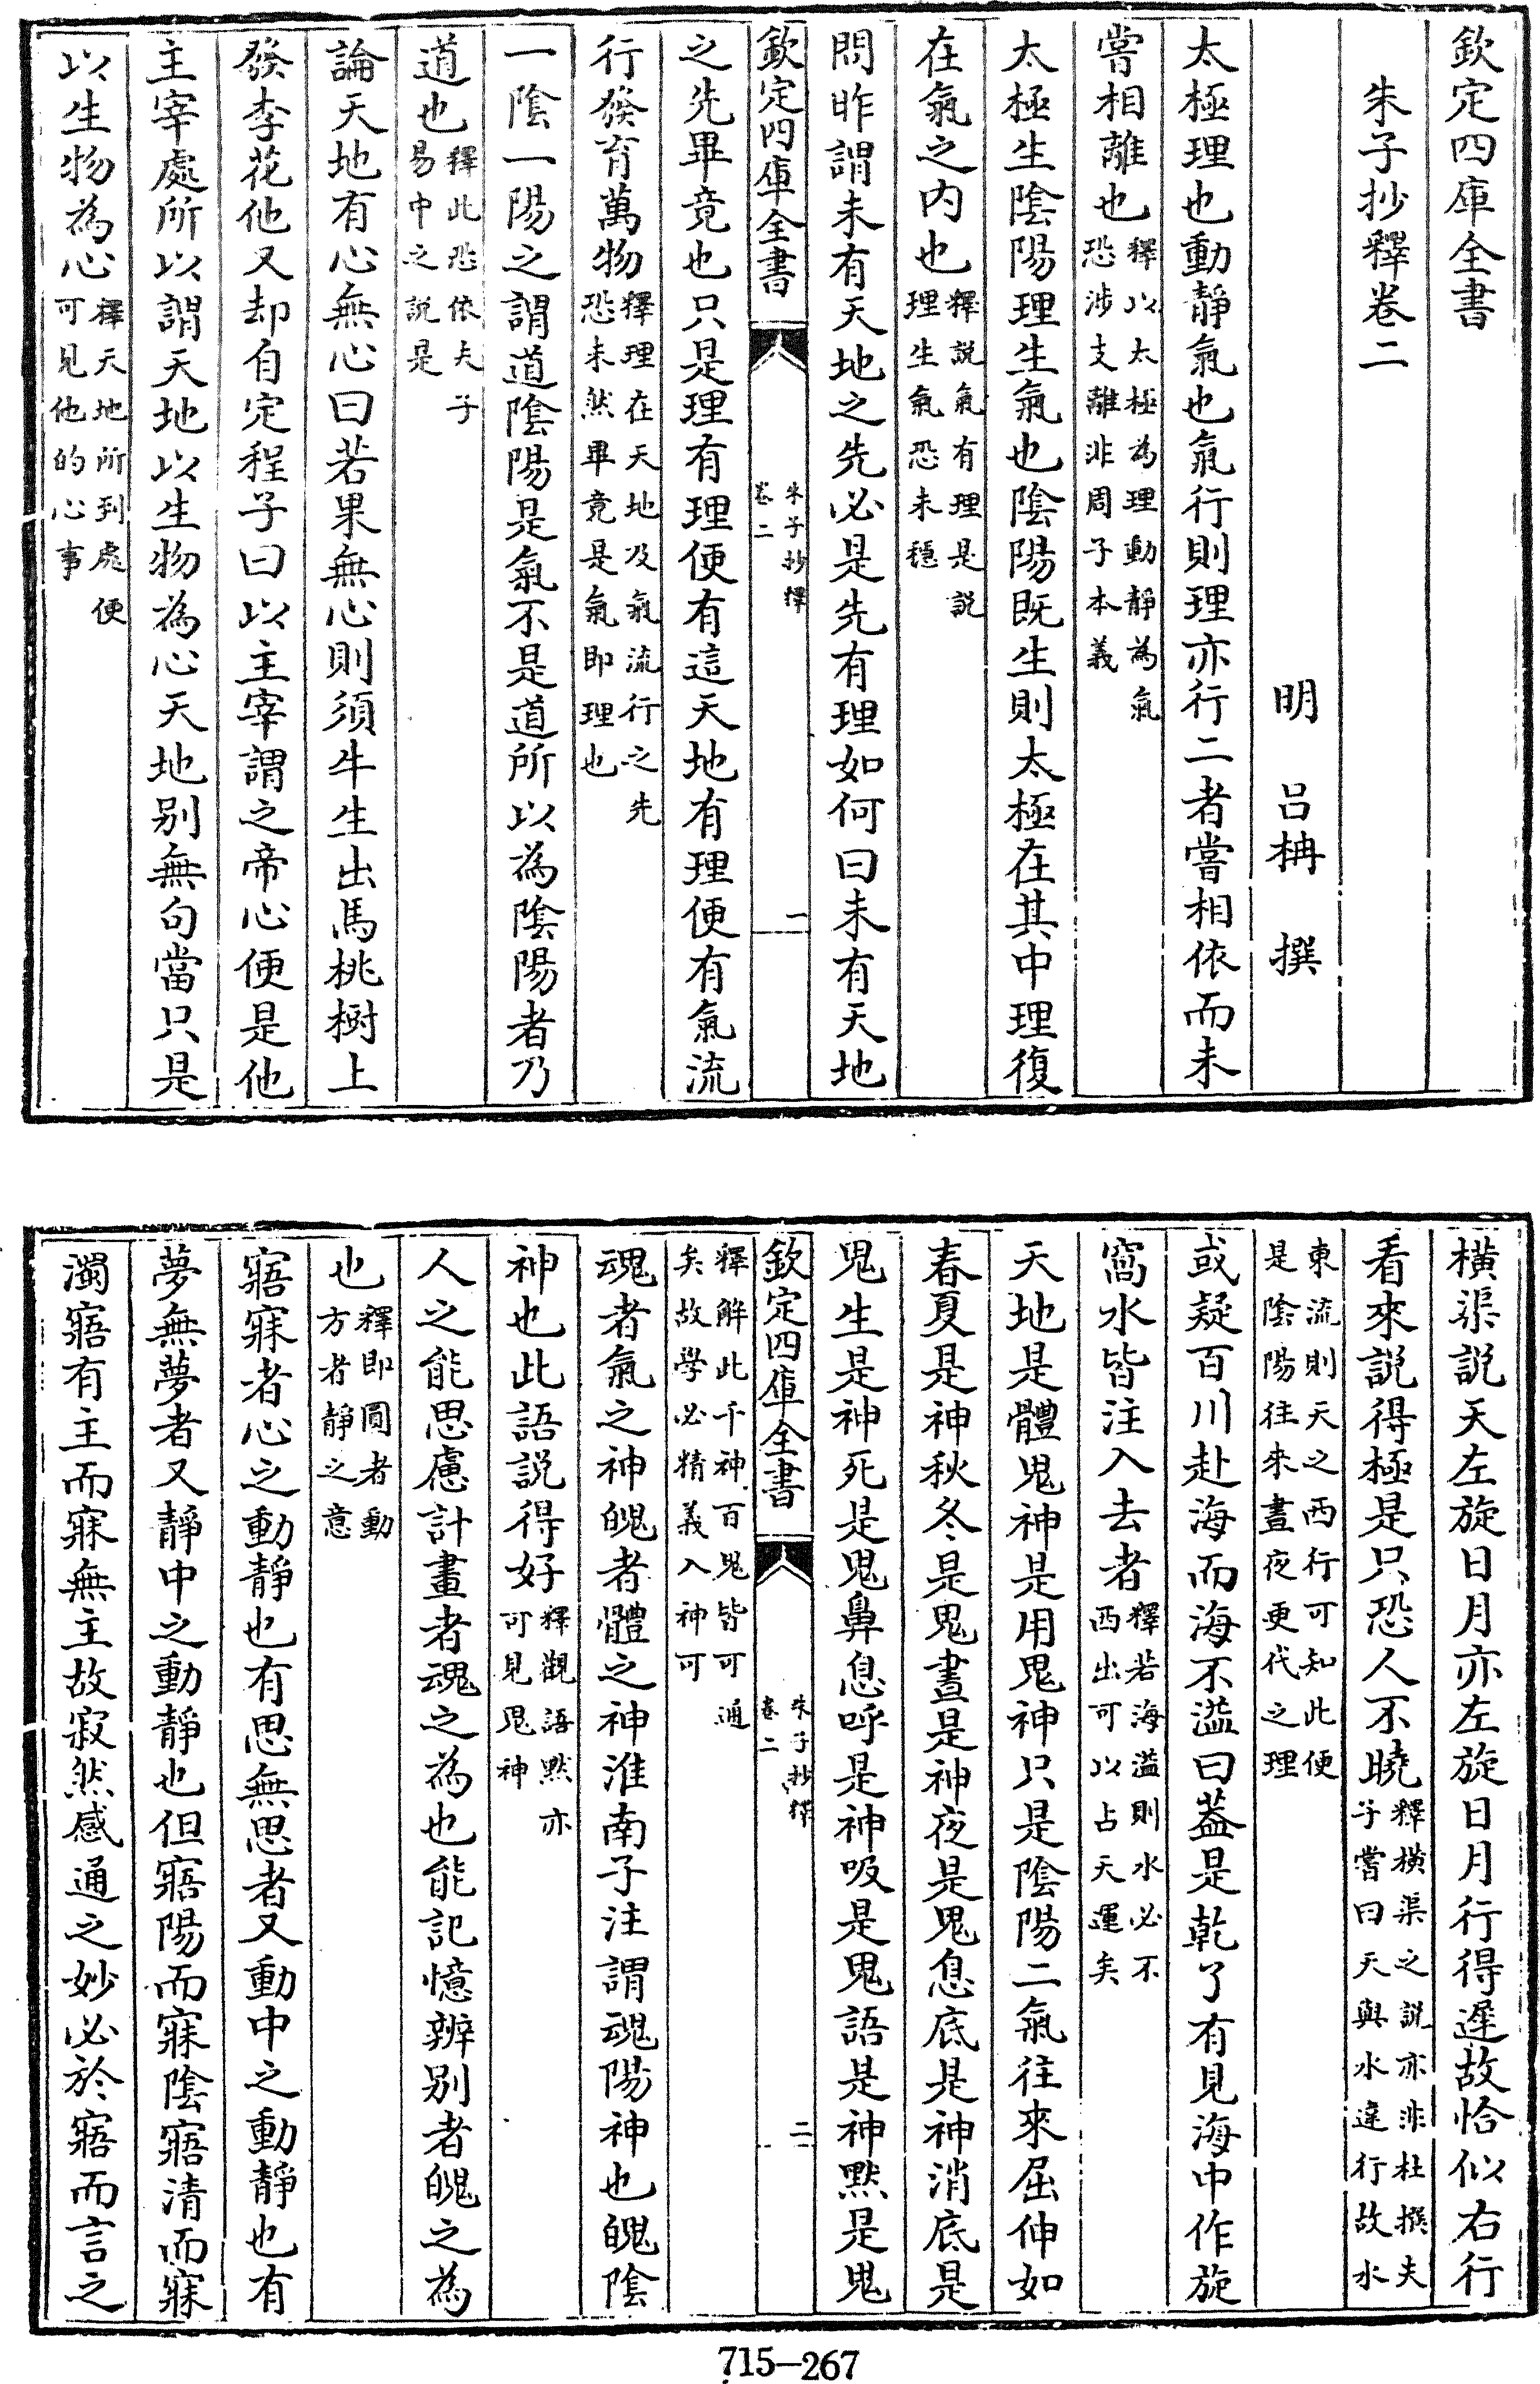 欽定四庫全書
朱子抄釋卷二
明　呂柟　撰
太極理也動靜氣也氣行則理亦行二者嘗相依而未
嘗相離也釋以太極為理動靜為氣恐涉支離非周子本義
太極生陰陽理生氣也陰陽既生則太極在其中理復
在氣之内也釋説氣有理是説理生氣恐未穩
問昨謂未有天地之先必是先有理如何曰未有天地
欽定四庫全書　朱子抄釋卷二　一
之先畢竟也只是理有理便有這天地有理便有氣流
行發育萬物釋理在天地及氣流行之先恐未然畢竟是氣即理也
一陰一陽之謂道陰陽是氣不是道所以為陰陽者乃
道也釋此恐依夫子易中之説是
論天地有心無心曰若果無心則須牛生出馬桃樹上
發李花他又却自定程子曰以主宰謂之帝心便是他
主宰處所以謂天地以生物為心天地别無句當只是
以生物為心釋天地所到處便可見他的心事
橫渠説天左旋日月亦左旋日月行得遲故恰似右行
看來説得極是只恐人不曉釋橫渠之説亦非杜撰夫子嘗曰天與水違行故水
東流則天之西行可知此便是陰陽往來晝夜更代之理
或疑百川赴海而海不溢曰葢是乾了有見海中作旋
窩水皆注入去者釋若海溢則水必不西出可以占天運矣
天地是體鬼神是用鬼神只是陰陽二氣往來屈伸如
春夏是神秋冬是鬼晝是神夜是鬼息底是神消底是
鬼生是神死是鬼鼻息呼是神吸是鬼語是神黙是鬼
欽定四庫全書　朱子抄釋卷二　二
釋解此千神百鬼皆可通矣故學必精義入神可
魂者氣之神魄者體之神淮南子注謂魂陽神也魄陰
神也此語説得好釋觀語黙亦可見鬼神
人之能思慮計畫者魂之為也能記憶辨别者魄之為
也釋即圓者動方者靜之意
寤寐者心之動靜也有思無思者又動中之動靜也有
夢無夢者又靜中之動靜也但寤陽而寐陰寤清而寐
濁寤有主而寐無主故寂然感通之妙必於寤而言之
715-267